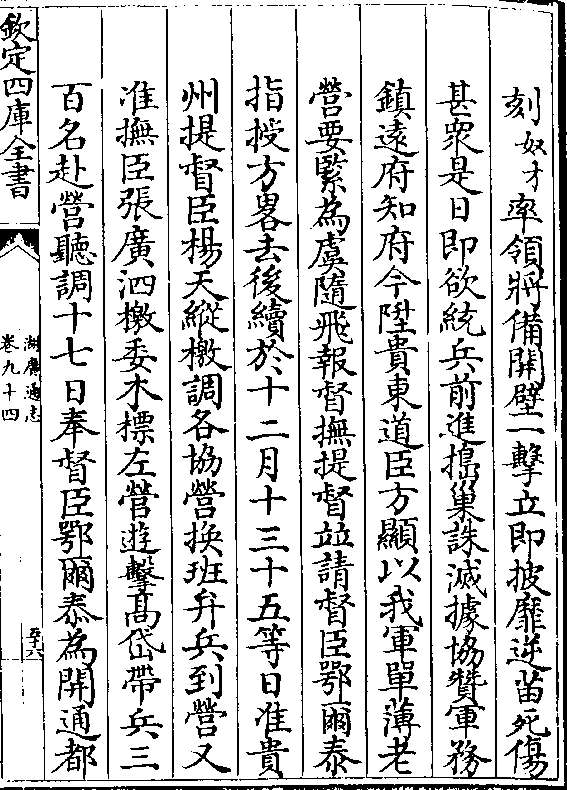 刻奴才率領將備開壁一擊立即披靡逆苗死傷
甚衆是日即欲統兵前進搗巢誅滅據協贊軍務
鎮遠府知府今陞貴東道臣方顯以我軍單薄老
營要緊為虞隨飛報督撫提督竝請督臣鄂爾泰
指授方畧去後續於十二月十三十五等日准貴
州提督臣楊天縱檄調各協營換班弁兵到營又
准撫臣張廣泗檄委本標左營遊擊高岱帶兵三
百名赴營聽調十七日奉督臣鄂爾泰為開通都
欽定四庫全書
湖廣通志
卷九十四
五十六